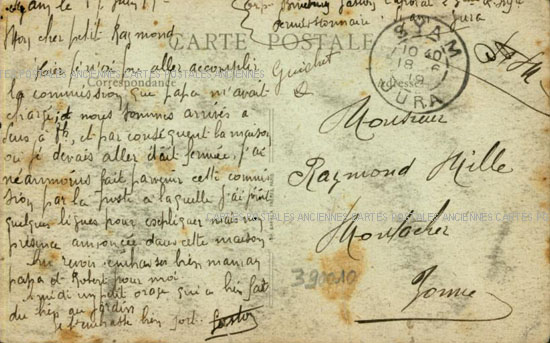 Mon cher petit Raymond
CARTE POSTALE
Hier je n'ai pu aller accomplir
la commission que papa m'avait
chargé, nous sommes arrivés à
et par conséquent la maison
où je devais aller était fermée, j'ai
néanmoins fait parvenir cette commis
sion par la poste à laquelle j'ai joint
quelques lignes pour expliquer mais ma
présence annoncée dans cette maison
Au revoir embrasser bien maman
papa et Robert pour moi
A midi un petit orage qui a bien fait
du bien au jardin
Je t'embrasse bien fort
Correspondance
Guichet
SYAM
10 40
18
19
JURA
Adresse
Monsieur
Raymond Mille
Montacher
Yonne
390010
CARTES POSTALES ANCIENNES CARTES POSTALES ANCIENNES CARTES POSTALES ANCIENNES CARTES POSTALES